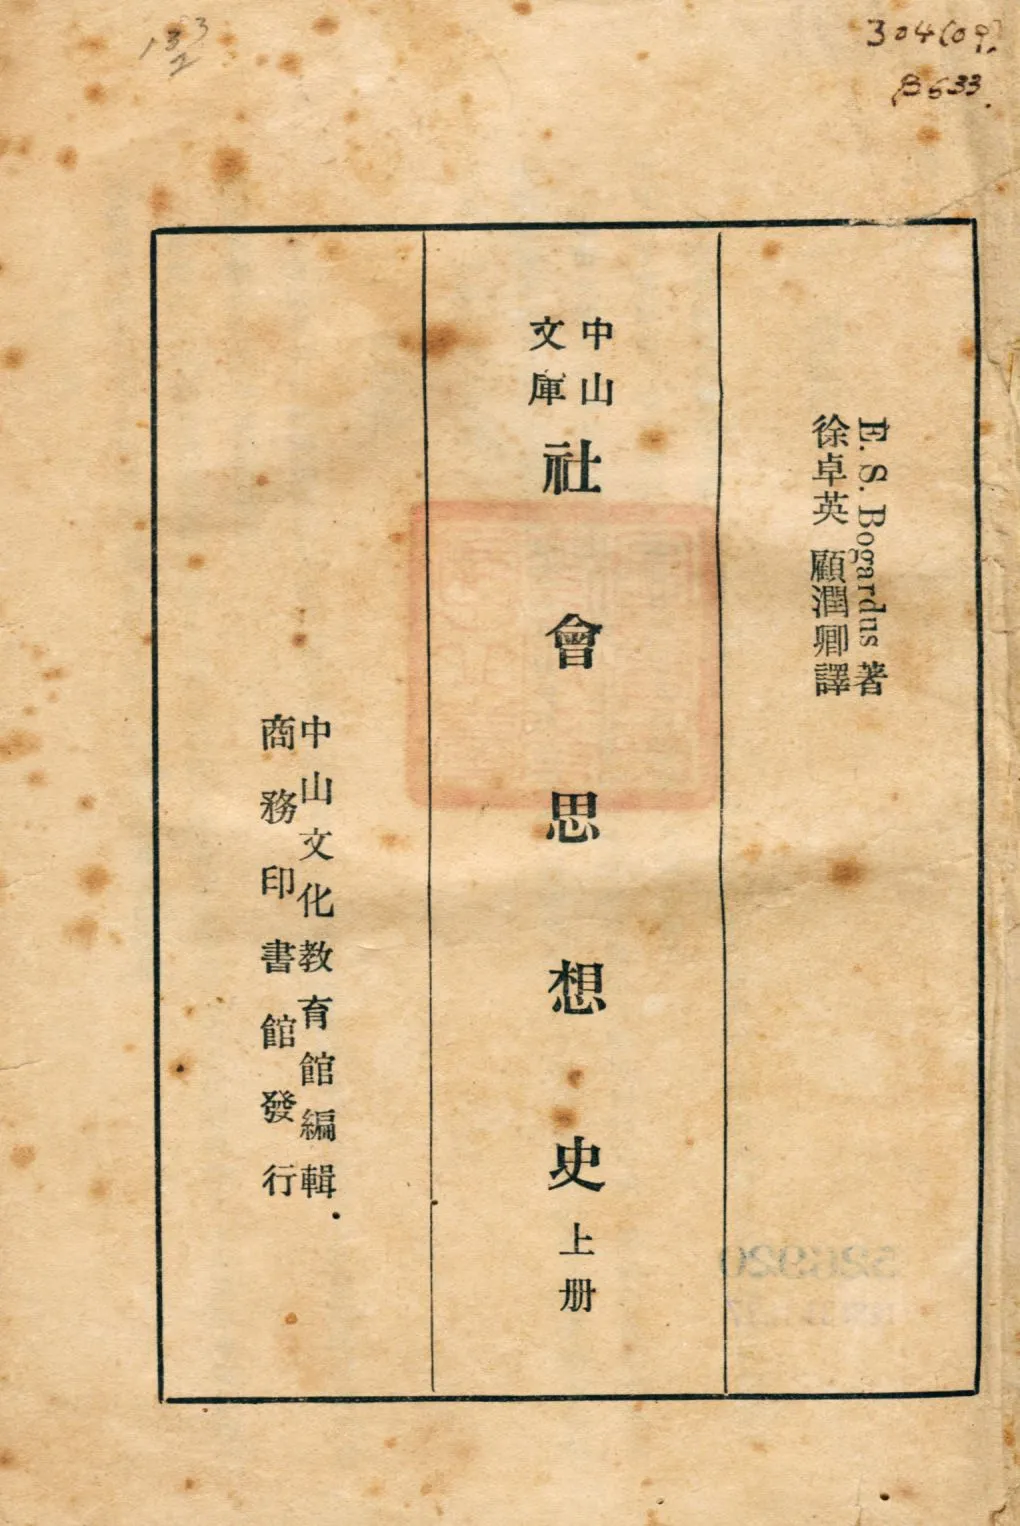 304(09)
B633
E. S. Bogardus 著
徐卓英 顧潤卿譯
中山
文庫
社會思想史 上册
中山文化教育館編輯
商務印書館發行